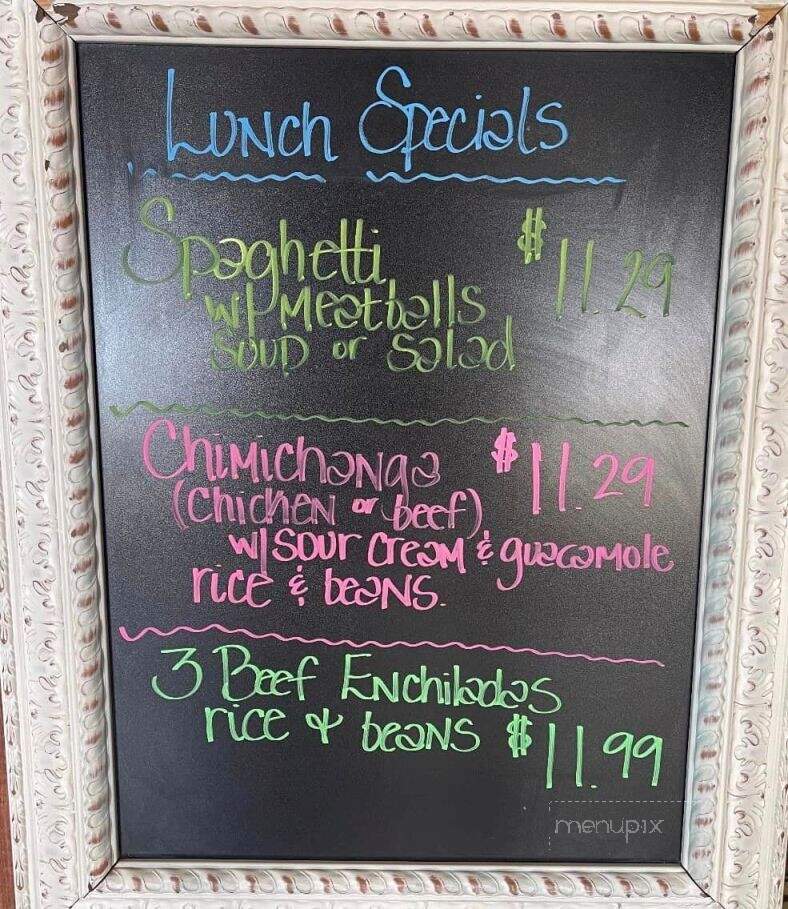 Lunch Specials
Spaghetti $11.29
w/ Meatballs
Soup or Salad
Chimichanga $11.29
(Chicken or beef)
w/ sour cream & guacamole
rice & beans.
3 Beef Enchiladas
rice & beans $11.99
menupix